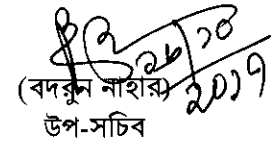 ২৮/১০
২০১৭
(বদরুন নাহার)
উপ-সচিব